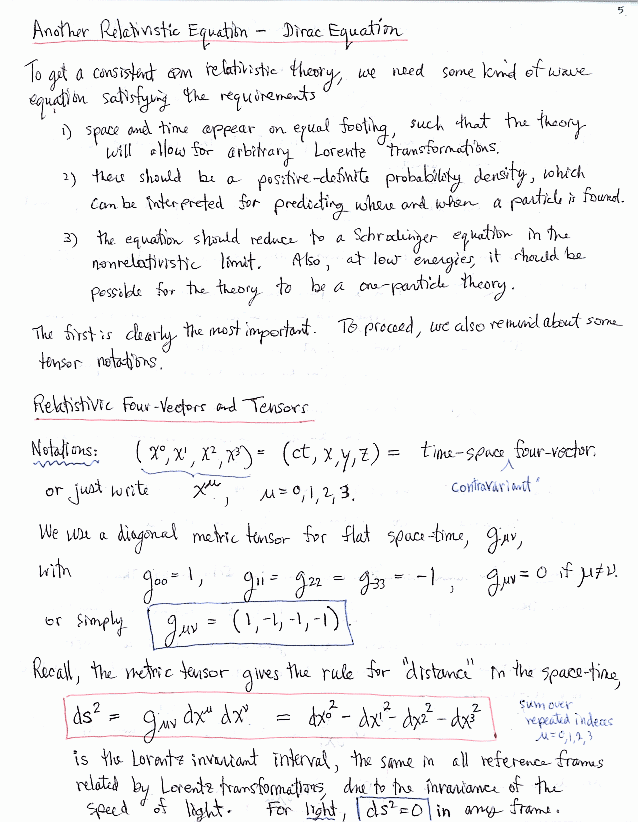 5
Another Relativistic Equation – Dirac Equation
To get a consistent QM relativistic theory, we need some kind of wave
equation satisfying the requirements
1) space and time appear on equal footing, such that the theory
will allow for arbitrary Lorentz transformations.
2) there should be a positive-definite probability density, which
can be interpreted for predicting where and when a particle is found.
3) the equation should reduce to a Schrodinger equation in the
nonrelativistic limit. Also, at low energies, it should be
possible for the theory to be a one-particle theory.
The first is clearly the most important. To proceed, we also remind about some
tensor notations.
Relativistic Four-Vectors and Tensors
Notations: (x⁰, x¹, x², x³) = (ct, x, y, z) = time-space four-vector.
or just write x^μ, μ = 0, 1, 2, 3. contravariant
We use a diagonal metric tensor for flat space-time, g_μν,
with g₀₀ = 1, g₁₁ = g₂₂ = g₃₃ = -1, g_μν = 0 if μ≠ν.
or simply g_μν = (1, -1, -1, -1)
Recall, the metric tensor gives the rule for "distance" in the space-time,
ds² = g_μν dx^μ dx^ν = dx⁰² - dx¹² - dx²² - dx³² sum over
repeated indeces
μ = 0, 1, 2, 3
is the Lorentz invariant interval, the same in all reference frames
related by Lorentz transformations, due to the invariance of the
speed of light. For light, ds² = 0 in any frame.